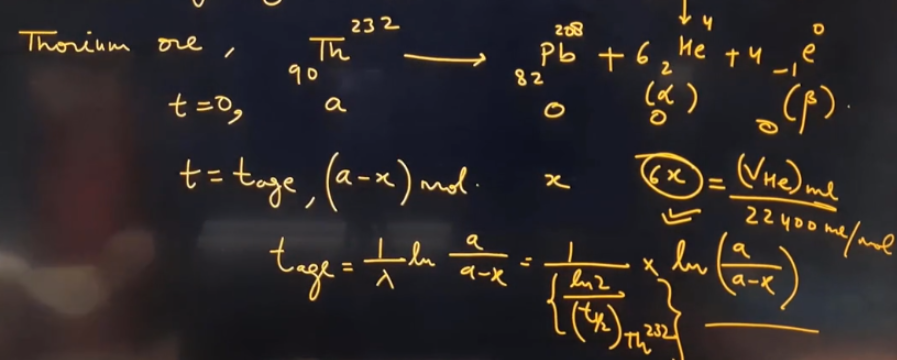 Thorium ore, ₉₀Th²³² ⟶ ₈₂Pb²⁰⁸ + 6 ₂He⁴ + 4 ₋₁e⁰
(α) (β).
t=0, a 0 0 0
t = tage, (a-x) mol. x 6x = (VHe)ml / 22400 ml/mol
tage = 1/λ ln a/(a-x) = 1/{ln2/(t½)Th²³²} × ln (a/(a-x))